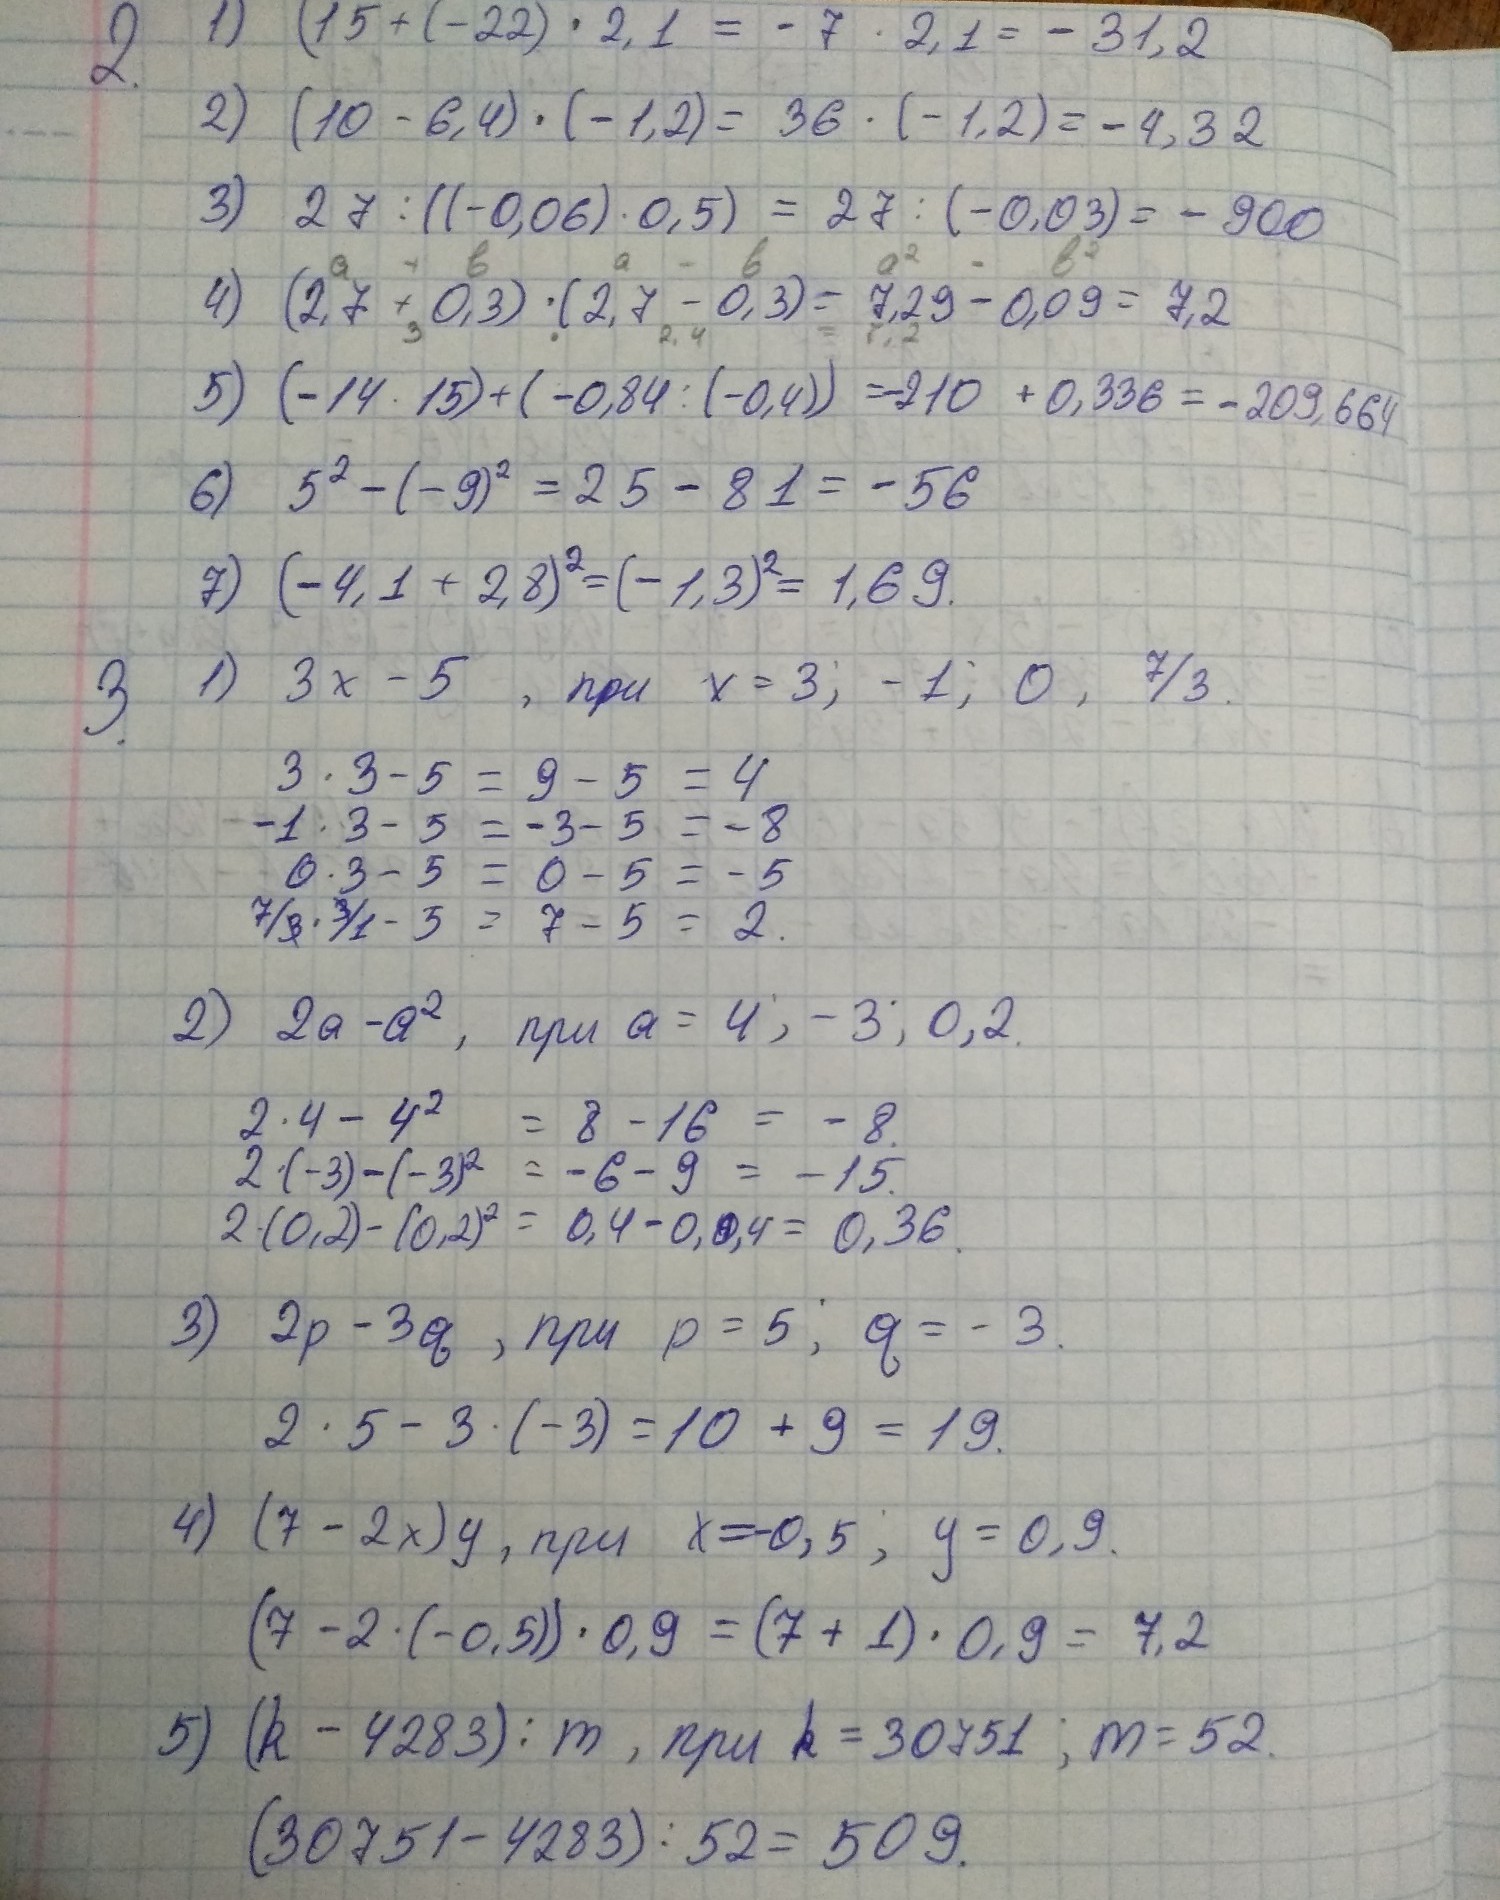 2. 1) (15 + (-22) · 2,1 = - 7 · 2,1 = - 31,2
2) (10 - 6,4) · (-1,2) = 36 · (-1,2) = - 4,32
3) 27 : ((-0,06) · 0,5) = 27 : (-0,03) = - 900
a + b a - b a² - b²
4) (2,7 + 0,3) · (2,7 - 0,3) = 7,29 - 0,09 = 7,2
3 · 2,4 = 7,2
5) (-14 · 15) + (-0,84 : (-0,4)) = -210 + 0,336 = -209,664
6) 5² - (-9)² = 25 - 81 = -56
7) (-4,1 + 2,8)² = (-1,3)² = 1,69.
3. 1) 3x - 5 , при x = 3; -1; 0, 7/3.
3 · 3 - 5 = 9 - 5 = 4
-1 · 3 - 5 = -3 - 5 = -8
0 · 3 - 5 = 0 - 5 = -5
7/3 · 3/1 - 5 = 7 - 5 = 2.
2) 2a - a², при a = 4; -3; 0,2.
2 · 4 - 4² = 8 - 16 = - 8.
2 · (-3) - (-3)² = -6 - 9 = -15.
2 · (0,2) - (0,2)² = 0,4 - 0,0,4 = 0,36.
3) 2p - 3q , при p = 5; q = - 3.
2 · 5 - 3 · (-3) = 10 + 9 = 19.
4) (7 - 2x)y, при x = -0,5; y = 0,9.
(7 - 2 · (-0,5)) · 0,9 = (7 + 1) · 0,9 = 7,2
5) (k - 4283) : m , при k = 30751 ; m = 52.
(30751 - 4283) : 52 = 509.